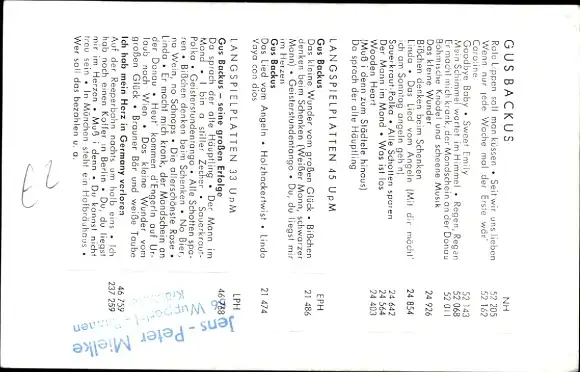 GUS BACKUS
NH
Rote Lippen soll man küssen • Seit wir uns lieben 52 205
Wenn nur jede Woche mal der Erste wär'
Caroline 52 162
Good-bye Baby • Sweet Emily 52 143
Mein Schimmel wartet im Himmel • Regen, Regen 52 068
Er macht mich krank, der Mondschein an der Donau 52 011
Böhmische Knödel und scheene Musik
Das kleine Wunder 24 926
Bißchen denken beim Schenken
Linda • Das Lied vom Angeln (Mit dir möcht' 24 854
ich am Sonntag angeln geh'n)
Sauerkraut-Polka • Alle Schotten sparen 24 642
Der Mann im Mond • Was ist los 24 564
Wooden Heart 24 403
(Muß i denn zum Städtele hinaus)
Da sprach der alte Häuptling
LANGSPIELPLATTEN 45 UpM
EPH
Gus Backus
Das kleine Wunder vom großen Glück • Bißchen
denken beim Schenken (Weißer Mann, schwarzer
Mann) • Geisterstundentango • Du, du liegst mir
im Herzen 21 486
Gus Backus
Das Lied vom Angeln • Holzhackertwist • Linda
Vaya con dios 21 474
LANGSPIELPLATTEN 33 UpM
LPH
Gus Backus – seine großen Erfolge 46 788
Da sprach der alte Häuptling • Der Mann im
Mond • I bin a stiller Zecher • Sauerkraut-
Polka • Geisterstundentango • Alle Schotten spa-
ren • Bißchen denken beim Schenken • No Bier,
no Wein, no Schnaps • Die allerschönste Rose •
Linda • Er macht mich krank, der Mondschein an
der Donau • Heut' kommen d'Engerln auf Ur-
laub nach Wien • Das kleine Wunder vom
großen Glück • Brauner Bär und weiße Taube
Ich hab mein Herz in Germany verloren 46 759
237 259
Auf der Reeperbahn nachts um halb eins • Ich
hab noch einen Koffer in Berlin • Du, du liegst
mir im Herzen • Muß i denn • Du kannst nicht
treu sein • In München steht ein Hofbräuhaus •
Wer soll das bezahlen u. a.
Jens - Peter Mielke